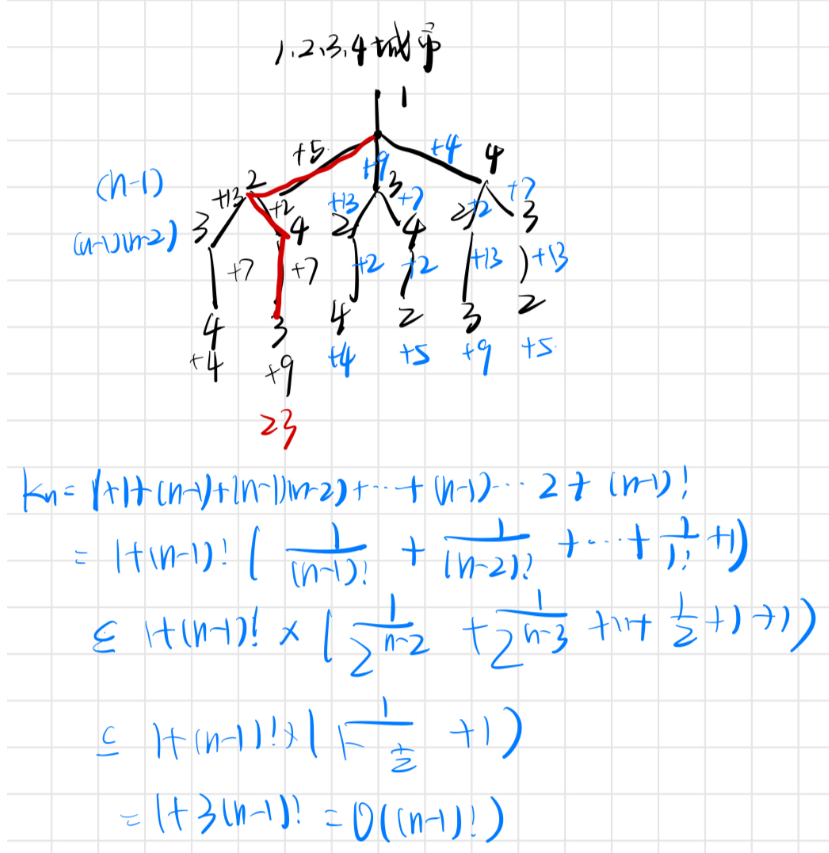 1.2.3.4城市
1
+5 +9 +4
(n-1) 2 3 4
+13 +2 +13 +7 +2 +7
(n-1)(n-2) 3 4 2 4 2 3
+7 +7 +2 +2 +13 +13
4 3 4 2 3 2
+4 +9 +4 +5 +9 +5
23
Kn = 1+1+(n-1)+(n-1)(n-2)+…+(n-1)…2+(n-1)!
= 1+(n-1)! ( 1/(n-1)! + 1/(n-2)! +…+ 1/1! +1)
≤ 1+(n-1)! × ( 1/2^(n-2) + 1/2^(n-3) +…+ 1/2 +1+1)
≤ 1+(n-1)! × ( 1/(1-1/2) +1)
= 1+3(n-1)! = O((n-1)!)